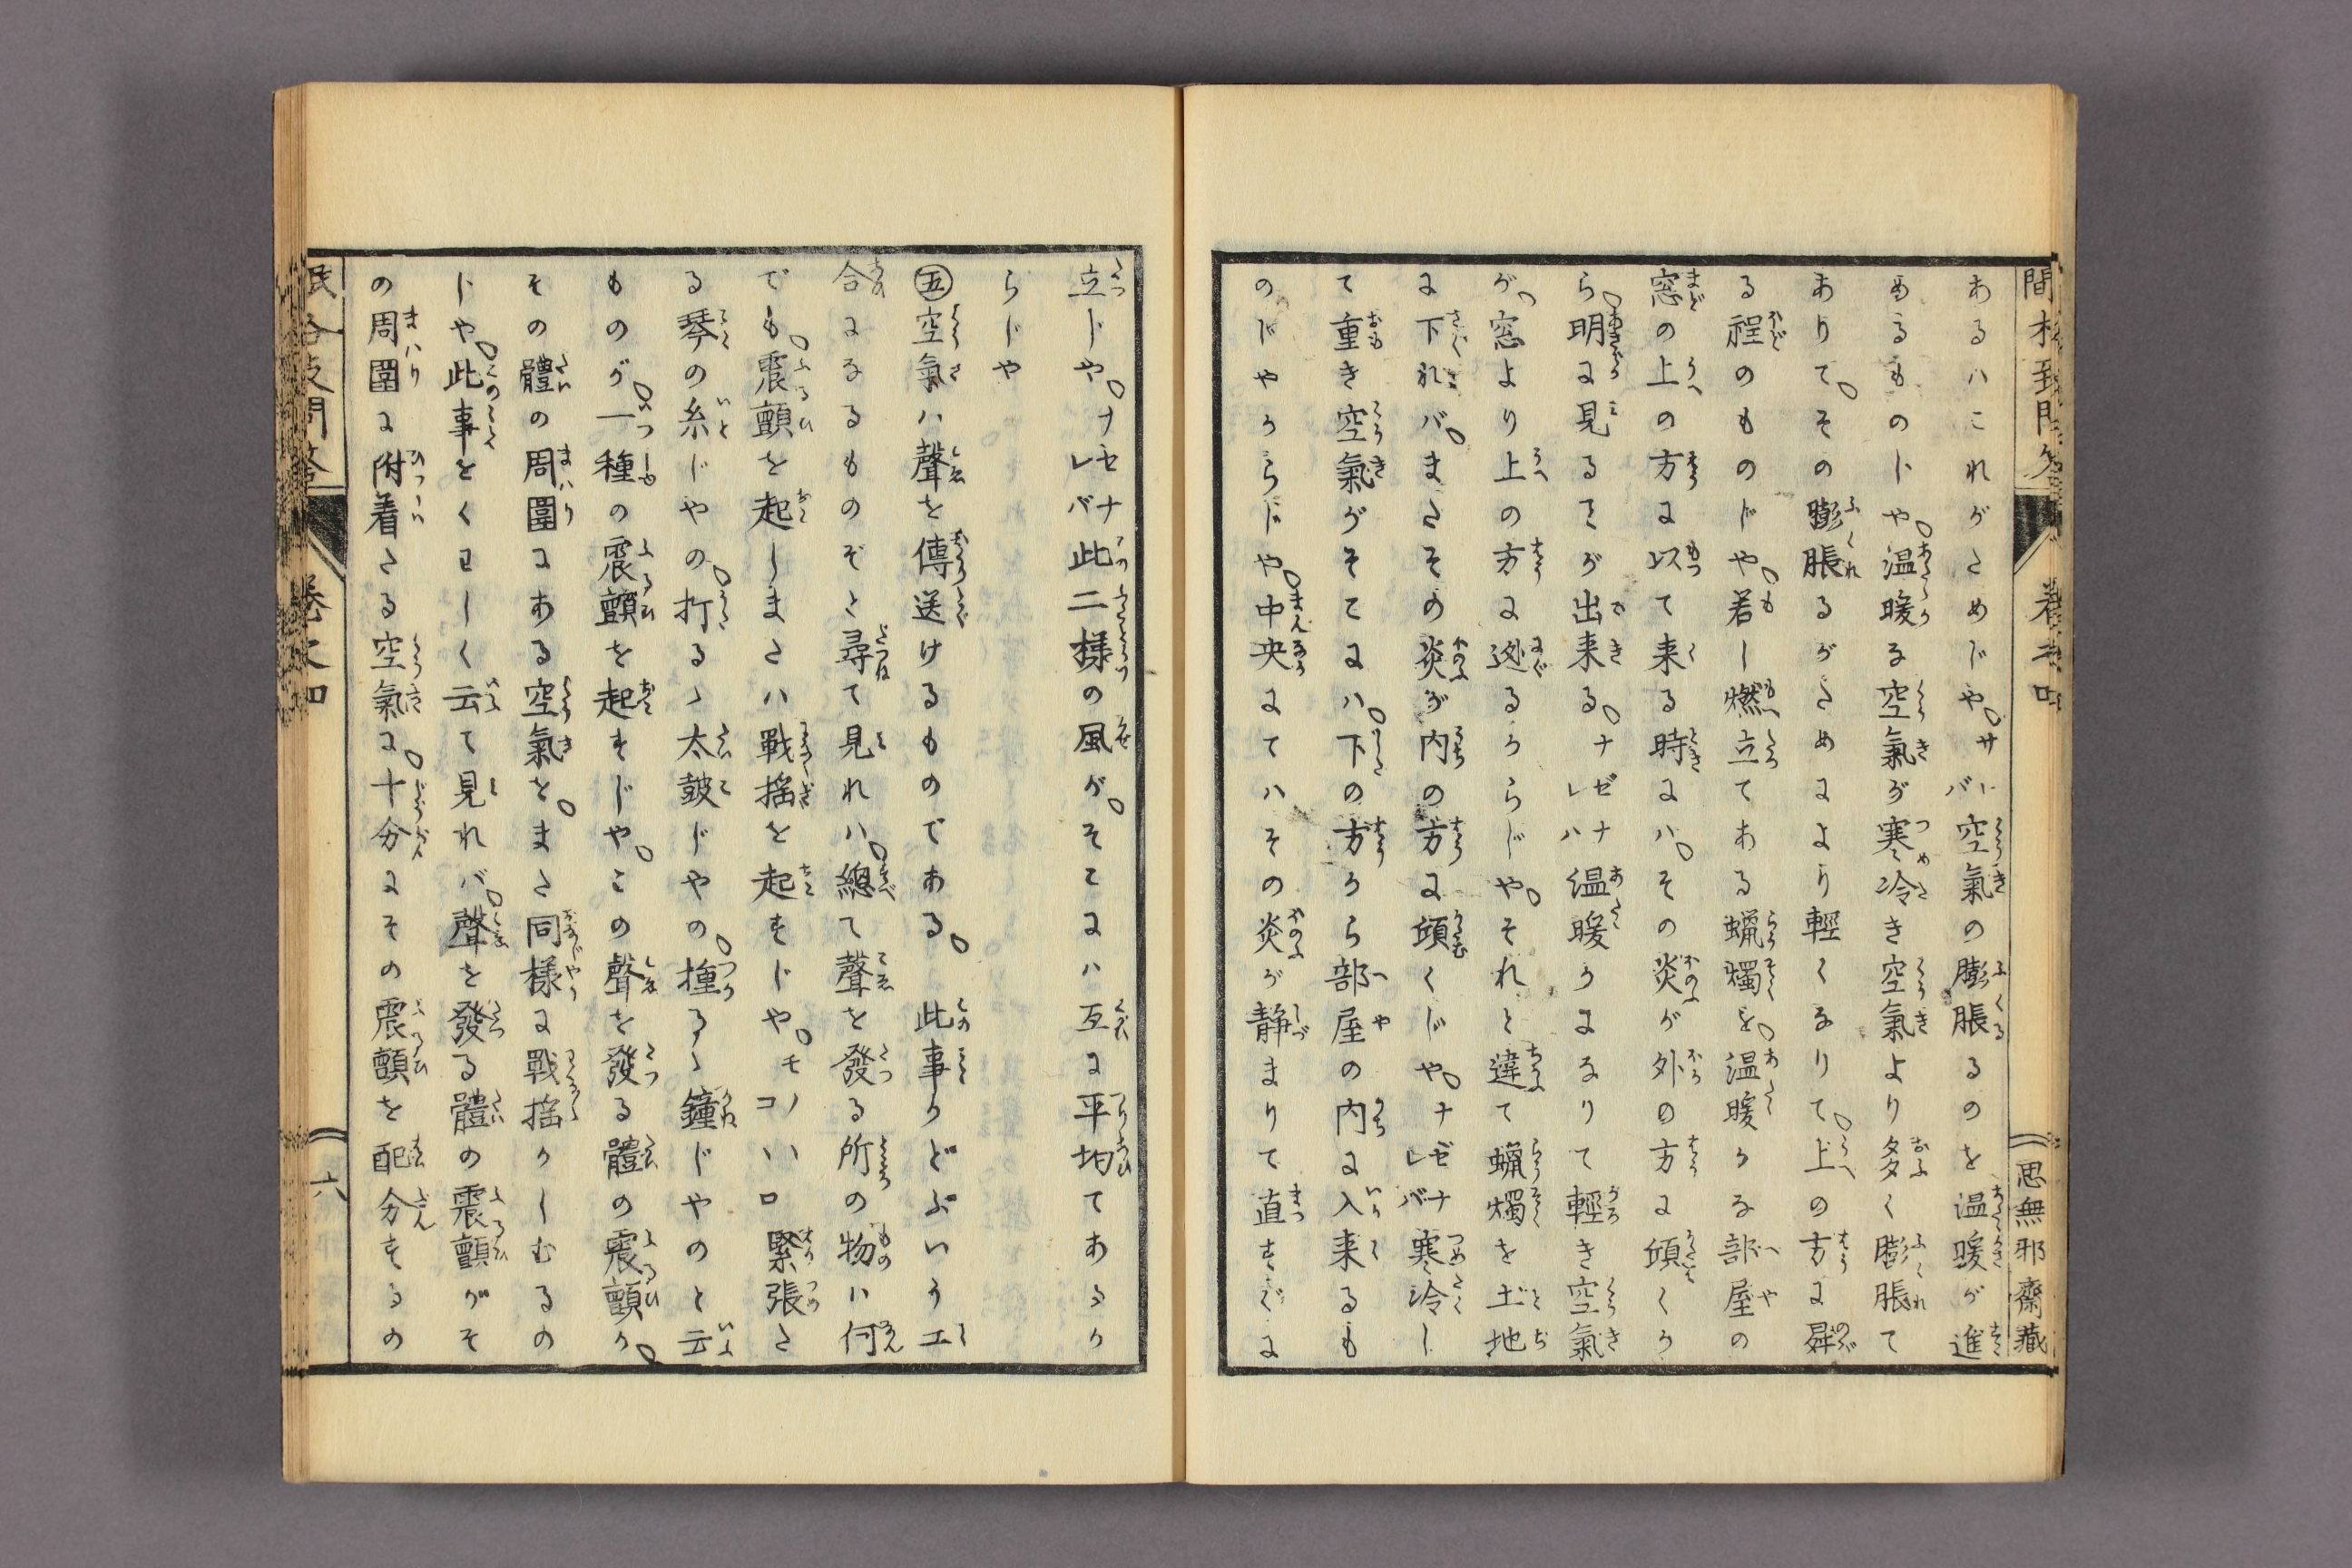 あるハこれがためじや。サレバ空氣の膨脹るのを温暖が進
めるものじや。温暖な空氣が寒冷き空氣より多く膨脹て
ありて。その膨脹るがためにより輕くなりて。上の方に昇
る程のものじや。若し燃立てある蝋燭を。温暖かな部屋の
窓の上の方に以て来る時にハ。その炎が外の方に傾くか
ら。明に見るヿが出来る。ナゼナレハ温暖かになりて輕き空氣
が。窓より上の方に迯るからじや。それと違て蝋燭を土地
に下れバ。またその炎が内の方に傾くじや。ナゼナレバ寒冷し
て重き空氣がそこにハ。下の方から部屋の内に入来るも
のじやからじや。中央にてハその炎が静まりて直すぐに
思無邪齋藏
立じや。ナゼナレバ此二様の風が。そこにハ互に平均てあるか
らじや
㊄空氣ハ聲を傳送けるものである。 此事ハどふいう工
合になるものぞと尋て見れハ。總て聲を發る所の物ハ何
でも。震顫を起しまたハ戰揺を起すじや。モノコトイロ緊張た
る琴の糸じやの。打るゝ太皷じやの。撞るゝ鐘じやのと云
ものが。一種の震顫を起すじや。この聲を發る體の震顫か。
その體の周圍にある空氣を。また同様に戰揺かしむるの
じや。此事をくわしく云て見れバ。聲を發る體の震顫がそ
の周圍に附着たる空氣に。十分にその震顫を配分するの
六